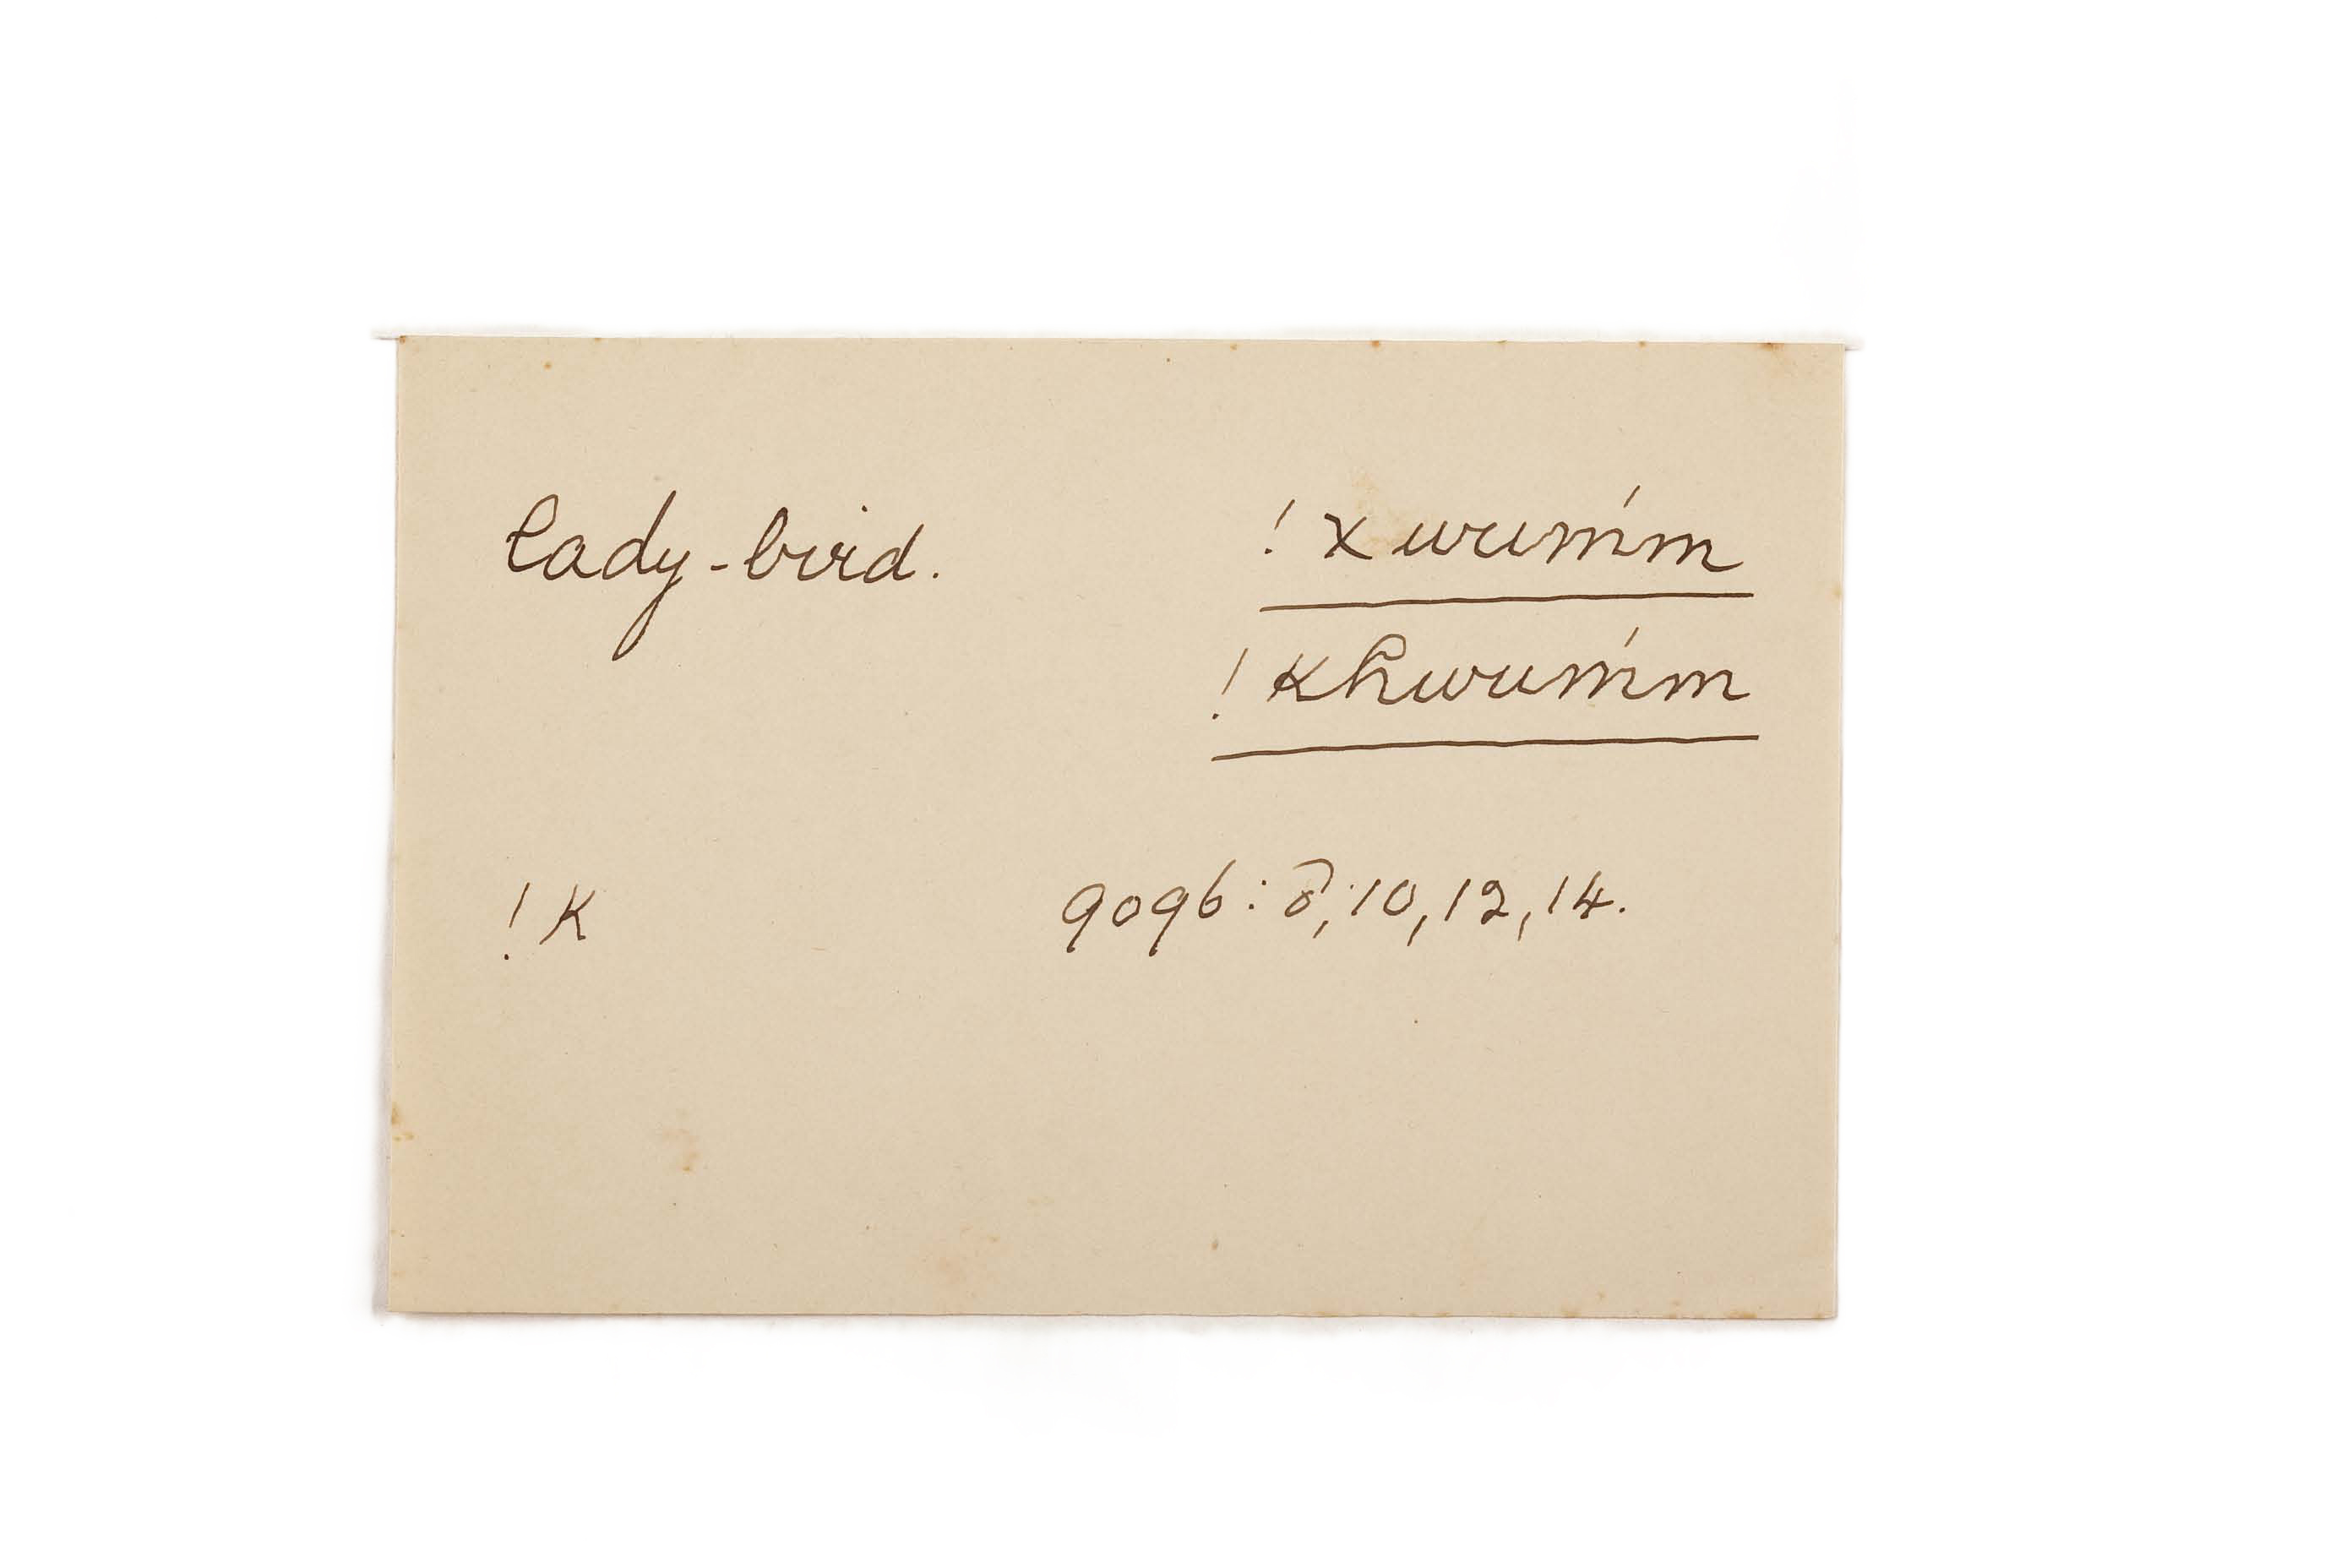 lady-bird. !χwum̍m
!khwum̍m
!K 9096: 8, 10, 12, 14.